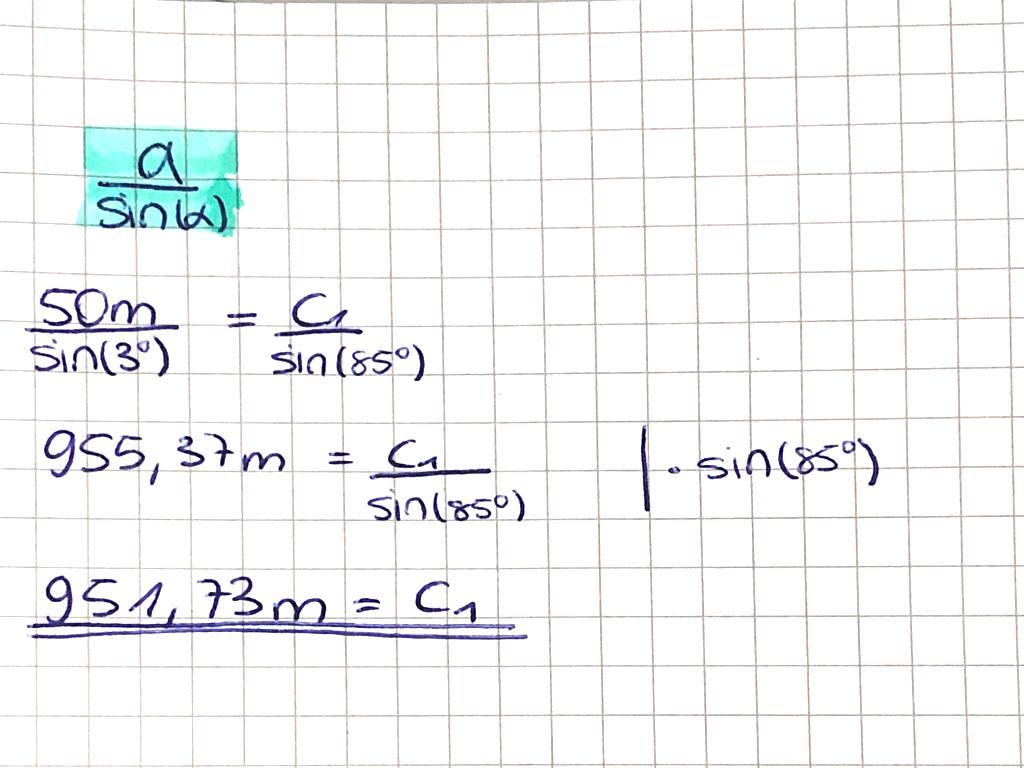 a
sin(α)
50m = C₁
sin(3°) sin(85°)
955,37m = C₁ | · sin(85°)
sin(85°)
951,73m = C₁